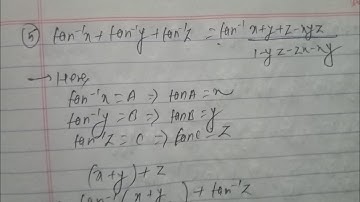 ⑤ tan⁻¹x + tan⁻¹y + tan⁻¹z = tan⁻¹ x+y+z-xyz
1-yz-zx-xy
→ Here,
tan⁻¹x = A => tanA = x
tan⁻¹y = B => tanB = y
tan⁻¹z = C => tanC = z
(x+y)+z
tan⁻¹(x+y) + tan⁻¹z